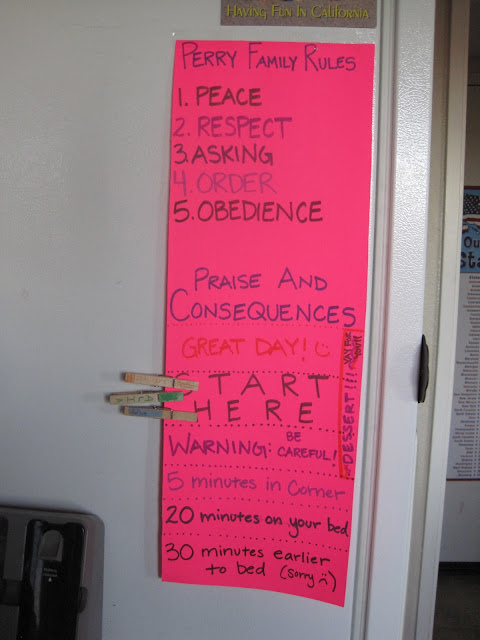 HAVING FUN IN CALIFORNIA
PERRY FAMILY RULES
1. PEACE
2. RESPECT
3. ASKING
4. ORDER
5. OBEDIENCE
PRAISE AND
CONSEQUENCES
GREAT DAY!
START
HERE
WARNING: BE
CAREFUL!
DESSERT!!!
5 minutes in Corner
20 minutes on your bed
30 minutes earlier
to bed (sorry)
Ou
Sta